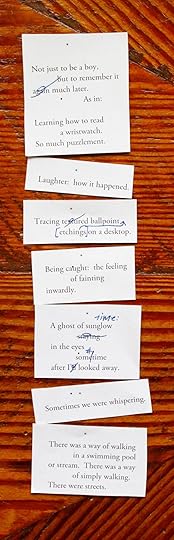 Not just to be a boy,
but to remember it
again much later.
As in:
Learning how to read
a wristwatch.
So much puzzlement.
Laughter: how it happened.
Tracing textured ballpoint
etchings on a desktop.
Being caught: the feeling
of fainting
inwardly.
time:
A ghost of sunglow
staying
in the eyes
sometime
after I'd looked away.
Sometimes we were whispering.
There was a way of walking
in a swimming pool
or stream. There was a way
of simply walking.
There were streets.